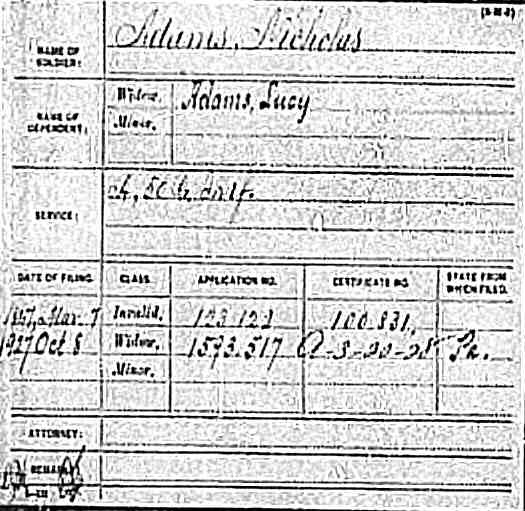 (3-20-2)
NAME OF SOLDIER: Adams, Nicholas
NAME OF DEPENDENT: Widow, Adams, Lucy
Minor,
SERVICE: Inf.
DATE OF FILING. CLASS. APPLICATION NO. CERTIFICATE NO. STATE FROM WHICH FILED.
Mar. 7 Invalid, 123.122 100.831.
1927 Oct 8 Widow, 1593.517 Pa.
Minor,
ATTORNEY:
REMARKS: